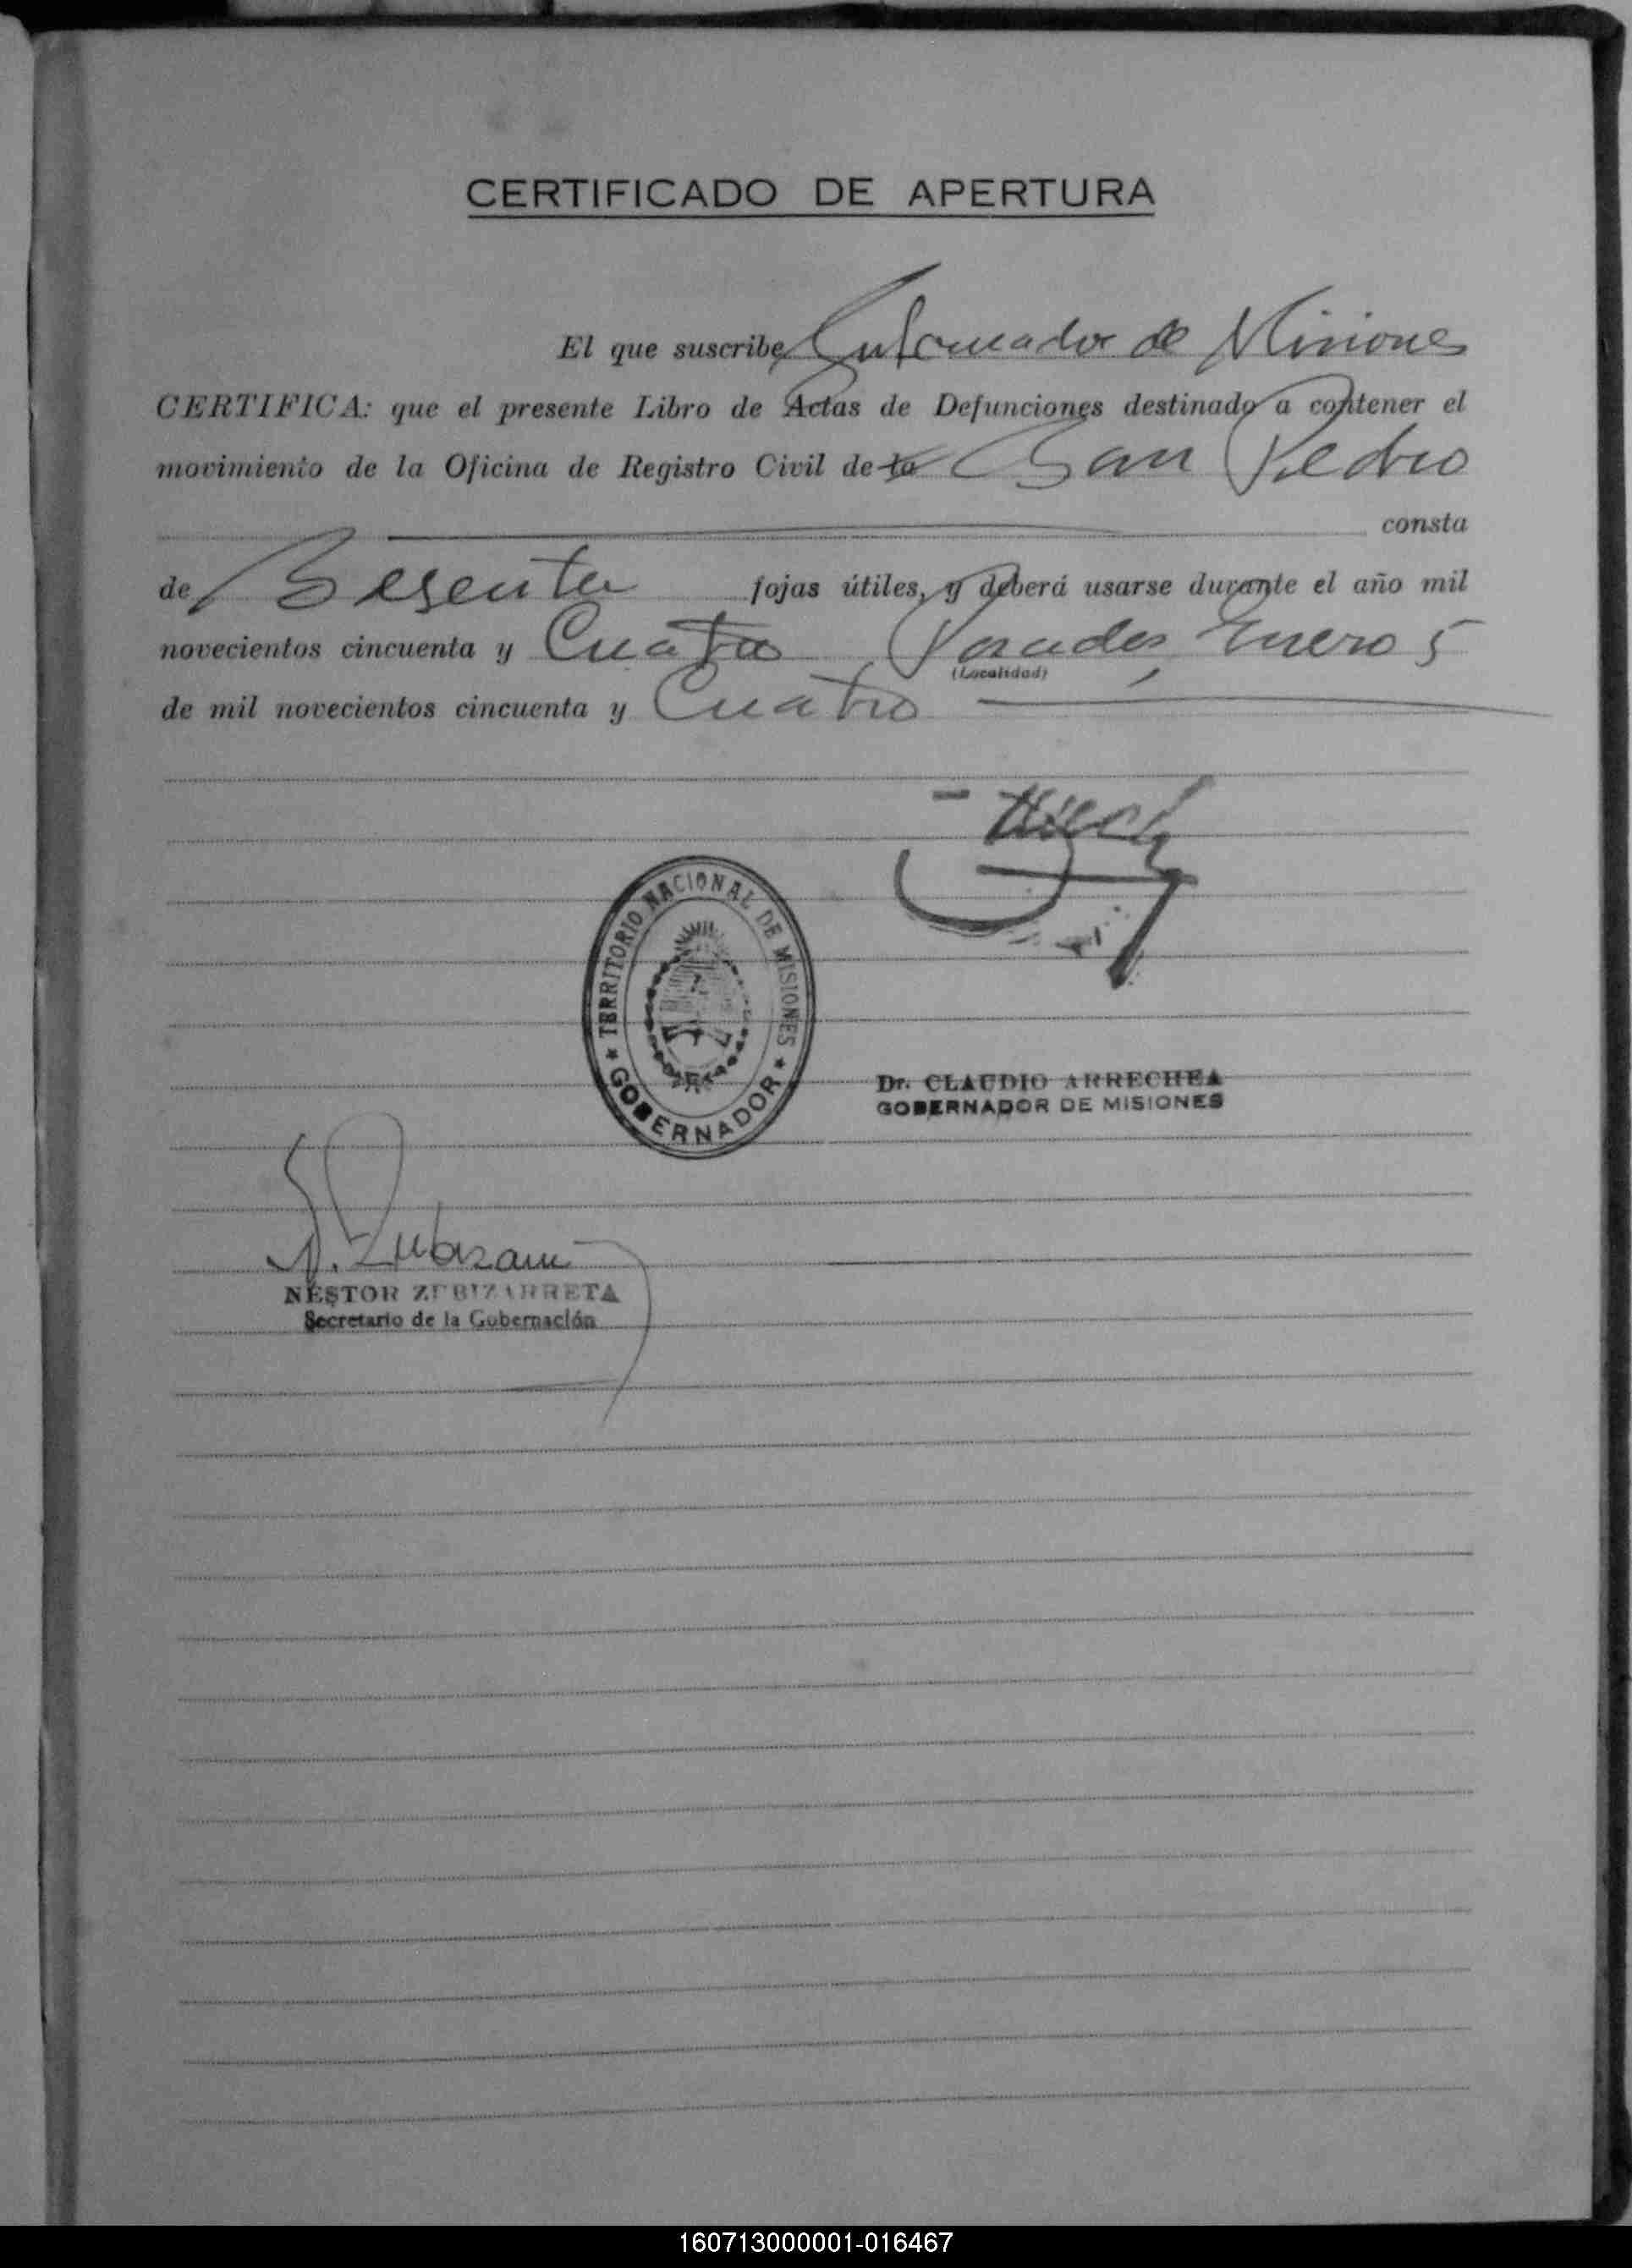 CERTIFICADO DE APERTURA
El que suscribe, Gobernador de Misiones
CERTIFICA: que el presente Libro de Actas de Defunciones destinado a contener el
movimiento de la Oficina de Registro Civil de la San Pedro
consta
de Sesenta fojas útiles, y deberá usarse durante el año mil
novecientos cincuenta y Cuatro Posadas, Enero 5
(Localidad)
de mil novecientos cincuenta y Cuatro
TERRITORIO NACIONAL DE MISIONES
GOBERNADOR
Dr. CLAUDIO ARRECHEA
GOBERNADOR DE MISIONES
NESTOR ZUBIZARRETA
Secretario de la Gobernación
160713000001-016467